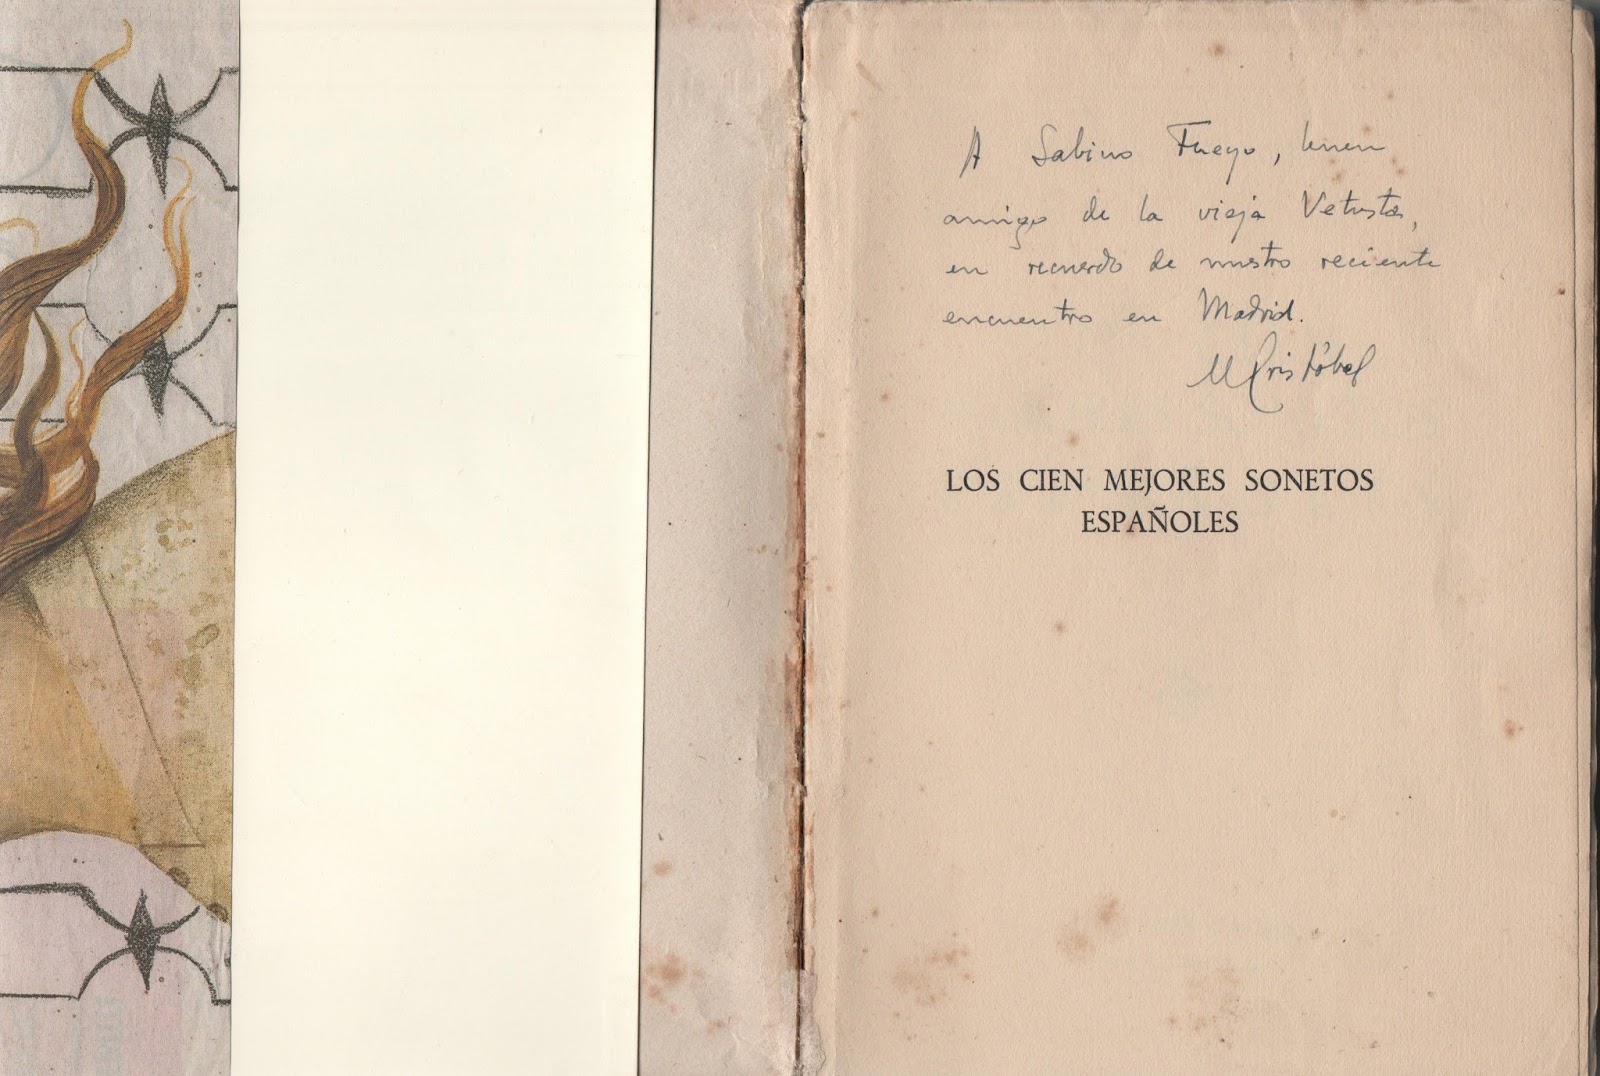 A Sabino Fueyo, buen
amigo de la vieja Vetusta,
en recuerdo de nuestro reciente
encuentro en Madrid.
M Cristóbal
LOS CIEN MEJORES SONETOS
ESPAÑOLES